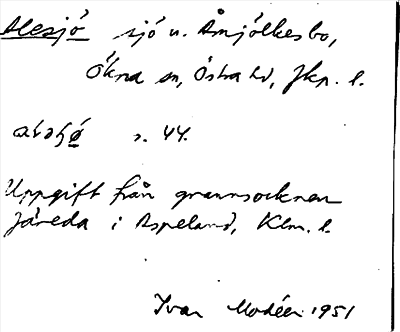 Alesjö sjö n. Ånjölkesbo,
Ökna sn, Östra hd, Jkp. l.
s. 44.
Uppgift från grannsocknen
Järeda i Aspeland, Klm. l.
Ivar Modéer 1951